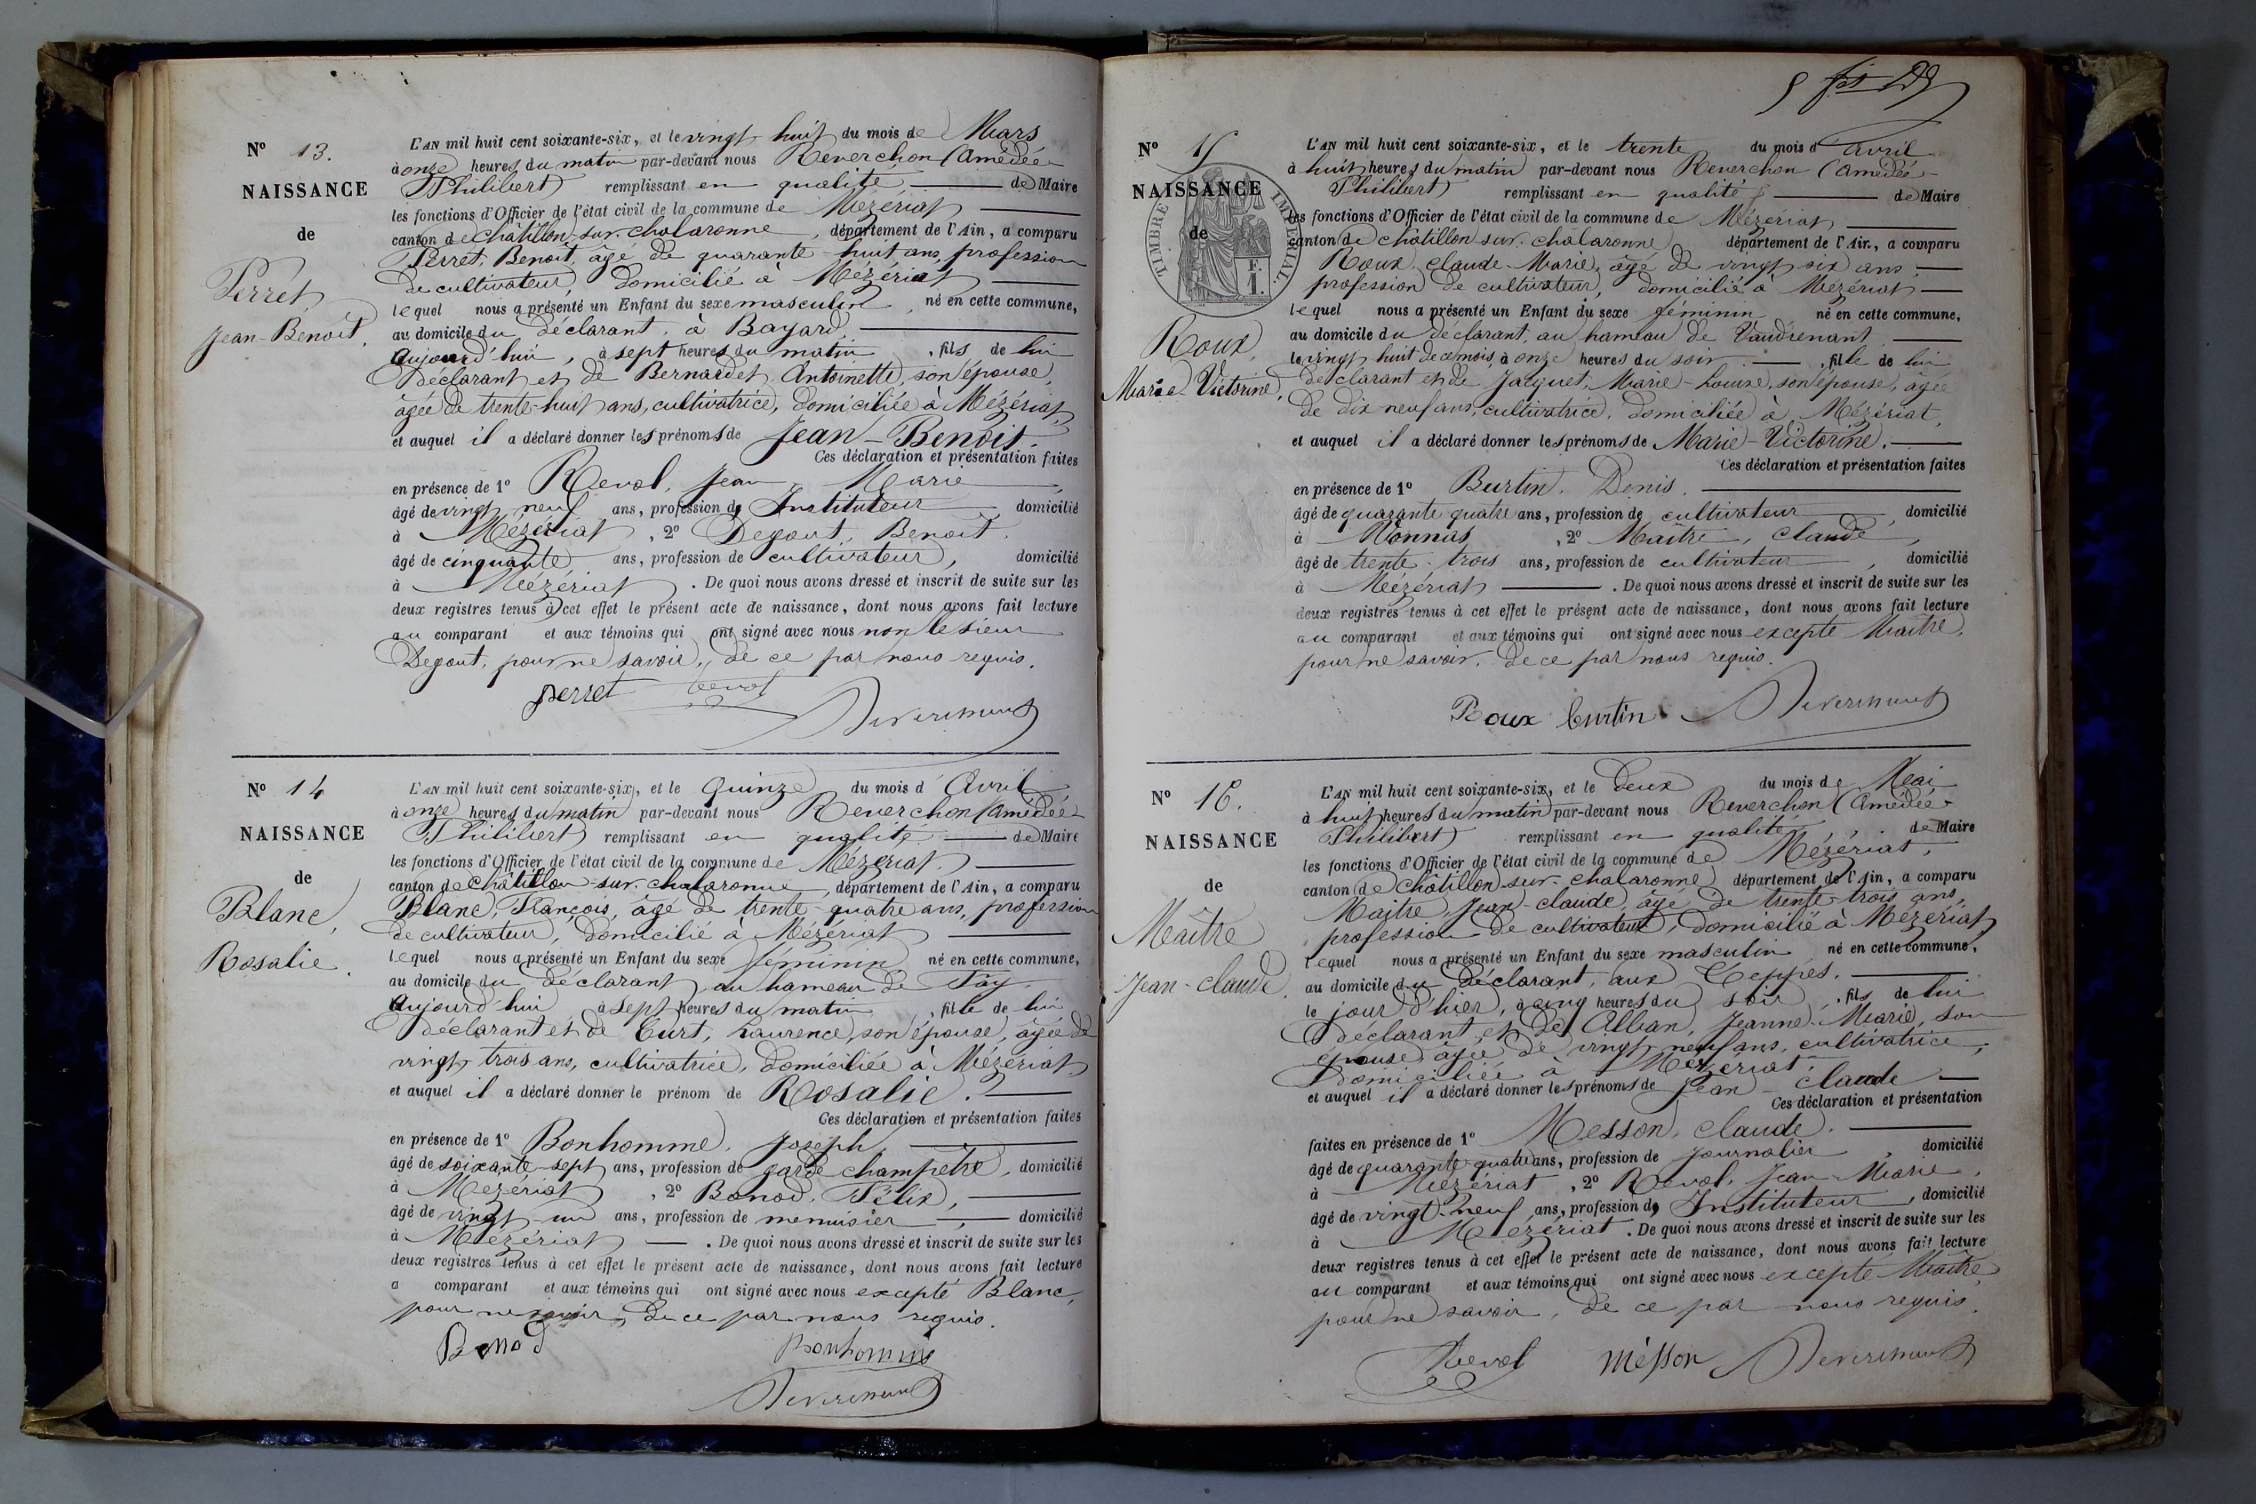 N° 13.
NAISSANCE
de
Perret
Jean-Benoit.
L'AN mil huit cent soixante-six, et le vingt huit du mois de Mars
à onze heures du matin par-devant nous Reverchon (Amédée-
Philibert) remplissant en qualité de Maire
les fonctions d'Officier de l'état civil de la commune de Mézériat
canton de Châtillon-sur-chalaronne, département de l'Ain, a comparu
Perret, Benoit, âgé de quarante-huit ans, profession
de cultivateur, domicilié à Mézériat
lequel nous a présenté un Enfant du sexe masculin, né en cette commune,
au domicile du déclarant, à Bayard,
aujourd'hui, à sept heures du matin, fils de lui
déclarant et de Bernardet, Antoinette, son épouse,
âgée de trente-huit ans, cultivatrice, domiciliée à Mézériat,
et auquel il a déclaré donner les prénoms de Jean-Benoit.
Ces déclaration et présentation faites
en présence de 1° Reval, Jean Marie
âgé de vingt neuf ans, profession d' Instituteur domicilié
à Mézériat, 2° Degout, Benoit.
âgé de cinquante ans, profession de cultivateur, domicilié
à Mézériat. De quoi nous avons dressé et inscrit de suite sur les
deux registres tenus à cet effet le présent acte de naissance, dont nous avons fait lecture
au comparant et aux témoins qui ont signé avec nous non le sieur
Degout, pour ne savoir, de ce par nous requis.
perret Reval
Reverchon
N° 14
NAISSANCE
de
Blanc,
Rosalie.
L'AN mil huit cent soixante-six, et le quinze du mois d'Avril
à onze heures du matin par-devant nous Reverchon (Amédée-
Philibert) remplissant en qualité de Maire
les fonctions d'Officier de l'état civil de la commune de Mézériat.
canton de châtillon-sur-chalaronne, département de l'Ain, a comparu
Blanc, François, âgé de trente-quatre ans, profession
de cultivateur, domicilié à Mézériat
lequel nous a présenté un Enfant du sexe féminin né en cette commune,
au domicile du déclarant, au hameau de Fay.
aujourd'hui à sept heures du matin, fille de lui
déclarant et de Curt, Laurence, son épouse, âgée de
vingt-trois ans, cultivatrice, domiciliée à Mézériat,
et auquel il a déclaré donner le prénom de Rosalie.
Ces déclaration et présentation faites
en présence de 1° Bonhomme, Joseph,
âgé de soixante-sept ans, profession de garde champêtre, domicilié
à Mézériat, 2° Bonod, Félix,
âgé de vingt-un ans, profession de menuisier, domicilié
à Mézériat. De quoi nous avons dressé et inscrit de suite sur les
deux registres tenus à cet effet le présent acte de naissance, dont nous avons fait lecture
a comparant et aux témoins qui ont signé avec nous excepté Blanc,
pour ne savoir, de ce par nous requis.
Bonod Bonhomme
Reverchon
N° 15
NAISSANCE
de
TIMBRE IMPÉRIAL.
F.
1.
Roux,
Marie-Victorine.
L'AN mil huit cent soixante-six, et le trente du mois d'avril
à huit heures du matin par-devant nous Reverchon (Amédée-
Philibert) remplissant en qualité de Maire
les fonctions d'Officier de l'état civil de la commune de Mézériat
canton de châtillon sur-chalaronne département de l'Ain, a comparu
Roux, claude-Marie, âgé de vingt six ans,
profession de cultivateur, domicilié à Mézériat
lequel nous a présenté un Enfant du sexe féminin né en cette commune,
au domicile du déclarant, au hameau de Vaudrenant
le vingt huit de ce mois, à onze heures du soir, fille de lui
déclarant et de Jacquet, Marie-Louise, son épouse, âgée
de dix neuf ans, cultivatrice, domiciliée à Mézériat,
et auquel il a déclaré donner les prénoms de Marie-Victorine.
Ces déclaration et présentation faites
en présence de 1° Burtin, Denis.
âgé de quarante quatre ans, profession de cultivateur, domicilié
à Vonnas, 2° Maître, claude,
âgé de trente-trois ans, profession de cultivateur, domicilié
à Mézériat. De quoi nous avons dressé et inscrit de suite sur les
deux registres tenus à cet effet le présent acte de naissance, dont nous avons fait lecture
au comparant et aux témoins qui ont signé avec nous excepté Maître,
pour ne savoir, de ce par nous requis.
Roux burtin Reverchon
N° 16.
NAISSANCE
de
Maître
Jean-claude.
L'AN mil huit cent soixante-six, et le deux du mois de Mai
à huit heures du matin par-devant nous Reverchon (Amédée-
Philibert) remplissant en qualité de Maire
les fonctions d'Officier de l'état civil de la commune de Mézériat,
canton de Châtillon-sur-chalaronne département de l'Ain, a comparu
Maître, Jean-claude, âgé de trente-trois ans,
profession de cultivateur, domicilié à Mézériat
lequel nous a présenté un Enfant du sexe masculin né en cette commune,
au domicile du déclarant, aux Teppes.
le jour d'hier, à cinq heures du soir, fils de lui
déclarant et de Alban, Jeanne-Marie, son
épouse, âgée de vingt neuf ans, cultivatrice,
domiciliée à Mézériat.
et auquel il a déclaré donner les prénoms de Jean-claude
Ces déclaration et présentation
faites en présence de 1° Messon, claude.
âgé de quarante quatre ans, profession de journalier, domicilié
à Mézériat, 2° Reval, Jean-Marie,
âgé de vingt-neuf ans, profession d' Instituteur, domicilié
à Mézériat. De quoi nous avons dressé et inscrit de suite sur les
deux registres tenus à cet effet le présent acte de naissance, dont nous avons fait lecture
au comparant et aux témoins qui ont signé avec nous excepté Maître,
pour ne savoir, de ce par nous requis.
Reval Mésson Reverchon